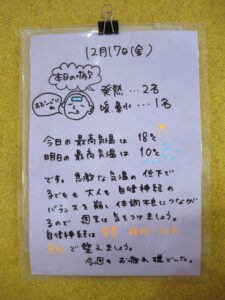 12月17日(金)
本日の病欠
発熱…2名
咳・鼻水…1名
今日の最高気温は 18℃
明日の最高気温は 10℃
です。急激な気温の低下で
子どもも大人も自律神経の
バランスを崩し体調不良につなが
るので 週末は気をつけましょう。
自律神経は
で整えましょう。
今週もお疲れ様でした。